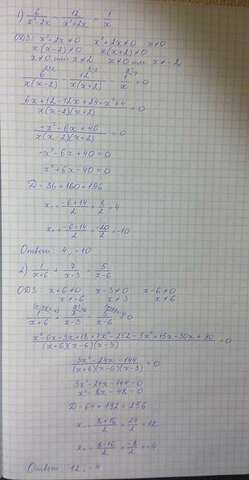 1) 6/(x²-2x) - 12/(x²+2x) = 1/x
ОДЗ: x²-2x≠0 x²+2x≠0 x≠0
x(x-2)≠0 x(x+2)≠0
x≠0 или x≠2 x≠0 или x≠-2
6/(x(x-2)) - 12/(x(x+2)) - 1/x = 0
(6x+12-12x+24-x²+4)/(x(x-2)(x+2)) = 0
(-x²-6x+40)/(x(x-2)(x+2)) = 0
-x²-6x+40=0
x²+6x-40=0
D=36+160=196
x₁=(-6+14)/2=8/2=4
x₂=(-6-14)/2=-20/2=-10
Ответ: 4, -10
2) 1/(x+6) + 7/(x-3) = 5/(x-6)
ОДЗ x+6≠0 x-3≠0 x-6≠0
x≠-6 x≠3 x≠6
1/(x+6) + 7/(x-3) - 5/(x-6) = 0
(3x²-24x-144)/((x+6)(x-6)(x-3)) = 0
3x²-24x-144=0
x²-8x-48=0
D=64+192=256
x₁=(8+16)/2=24/2=12
x₂=(8-16)/2=-8/2=-4
Ответ: 12, -4